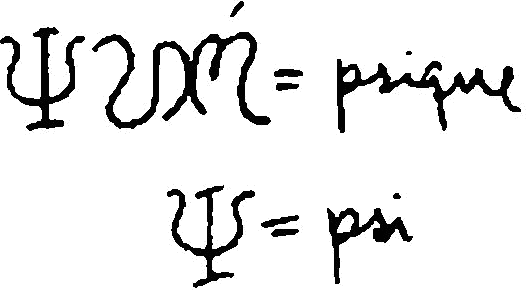 Ψυχή = psique
Ψ = psi